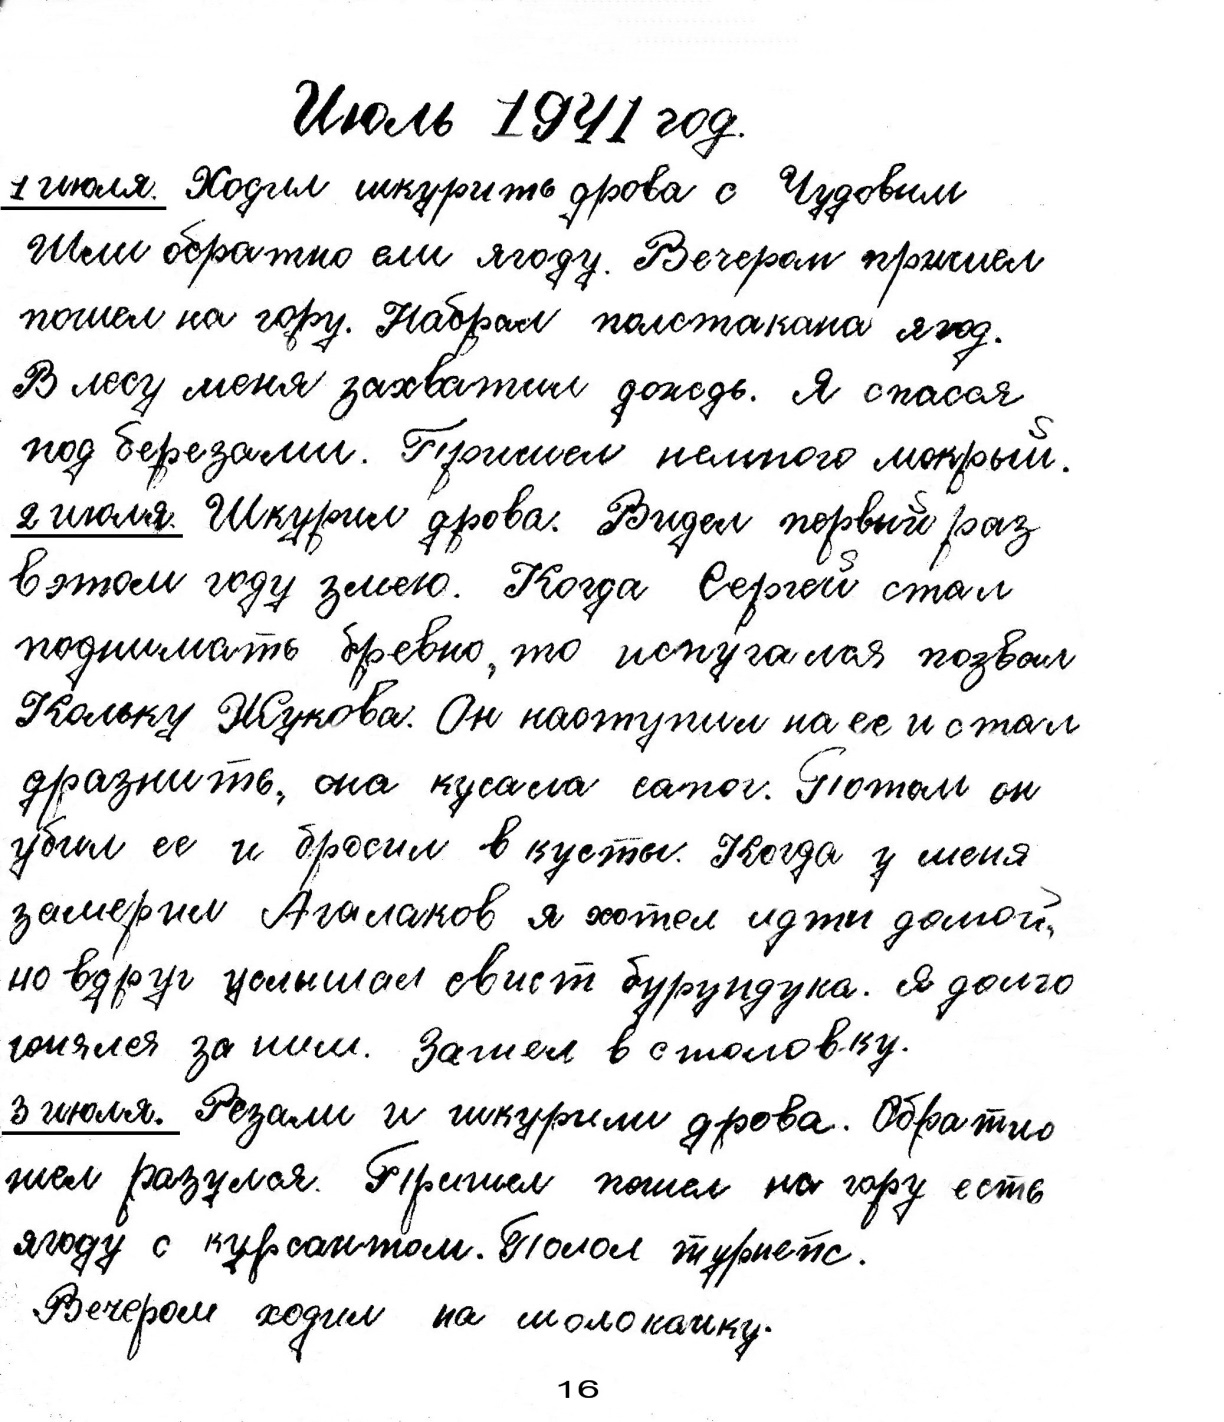 Июль 1941 год.
1 июля. Ходил шкурить дрова с Чудовым
Шли обратно ели ягоду. Вечером пришел
пошел на гору. Набрал полстакана ягод.
В лесу меня захватил дождь. Я спасся
под березами. Пришел немного мокрый.
2 июля. Шкурил дрова. Видел первый раз
в этом году змею. Когда Сергей стал
поднимать бревно, то испугался позвал
Кольку Жукова. Он наступил на ее и стал
дразнить, она кусала сапог. Потом он
убил ее и бросил в кусты. Когда у меня
замерил Агалаков я хотел идти домой,
но вдруг услышал свист бурундука. Я долго
гонялся за ним. Зашел в столовку.
3 июля. Резали и шкурили дрова. Обратно
шел разулся. Пришел пошел на гору есть
ягоду с курсантом. Полол турнепс.
Вечером ходил на молоканку.
16